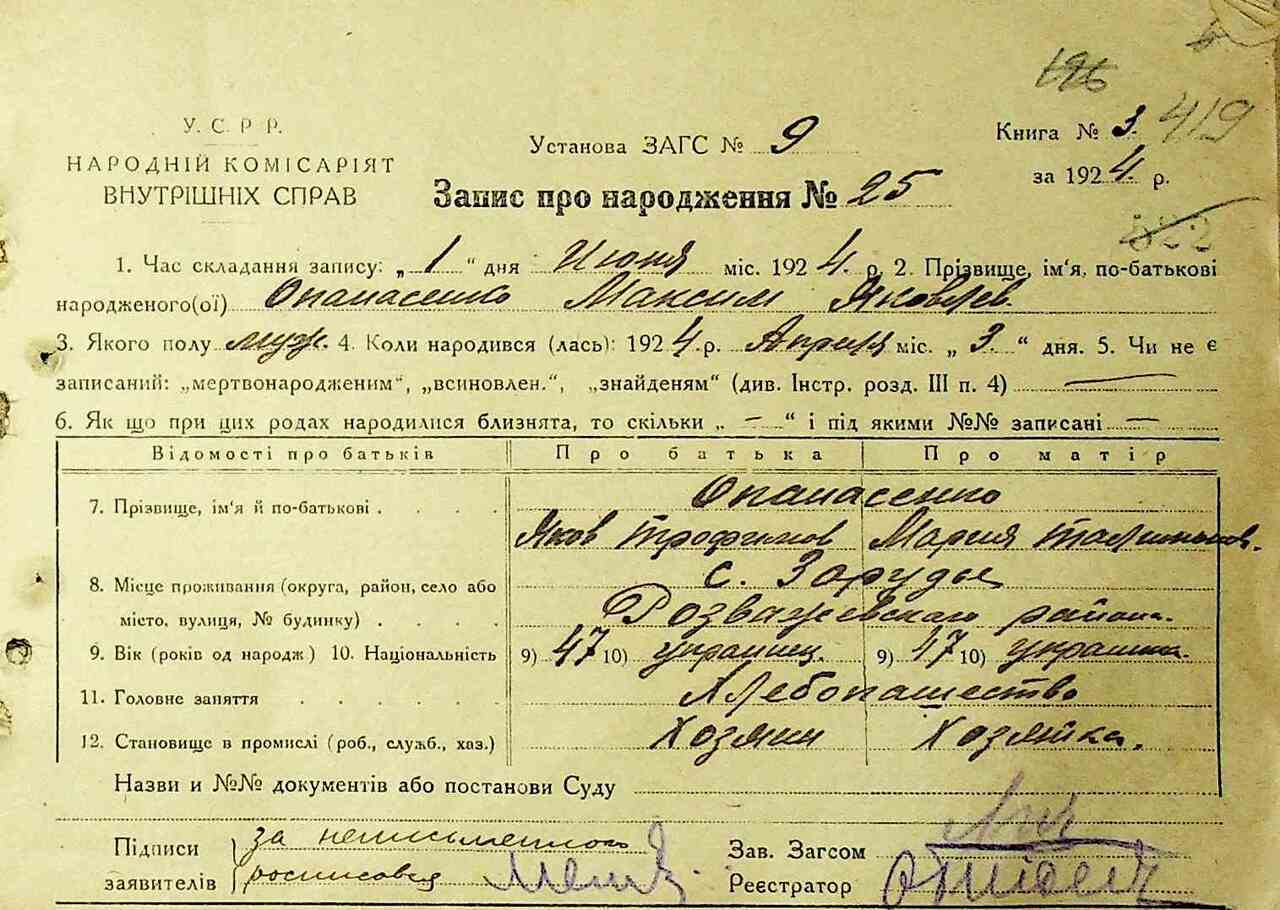 196
419
У. С. Р. Р.
НАРОДНІЙ КОМІСАРІЯТ
ВНУТРІШНІХ СПРАВ
Установа ЗАГС № 9
Книга № 3.
за 1924 р.
Запис про народження № 25
522
1. Час складання запису: „1“ дня Июня міс. 1924. р. 2. Прізвище, ім'я, по-батькові
народженого(ої) Опанасенко Максим Яковлев.
3. Якого полу муж. 4. Коли народився (лась): 1924.р. Апреля міс. „3.“ дня. 5. Чи не є
записаний: „мертвонародженим“, „всиновлен.“, „знайденям“ (див. Інстр. розд. III п. 4)
6. Як що при цих родах народилися близнята, то скільки „—“ і під якими №№ записані —
Відомості про батьків Про батька Про матір
7. Прізвище, ім'я й по-батькові . . . . Опанасенко
Яков Трофимов Мария
8. Місце проживання (округа, район, село або с. Зарудье
місто, вулиця, № будинку) . . . . Розважевскаго района.
9. Вік (років од народж) 10. Національність 9) 47 10) украинец. 9) 47 10) украинка.
11. Головне заняття . . . . . . Хлебопашество
12. Становище в промислі (роб., служб., хаз.) Хозяин Хозяйка.
Назви и №№ документів або постанови Суду
Підписи за неписьменного
заявителів росписовся
Зав. Загсом
Реєстратор